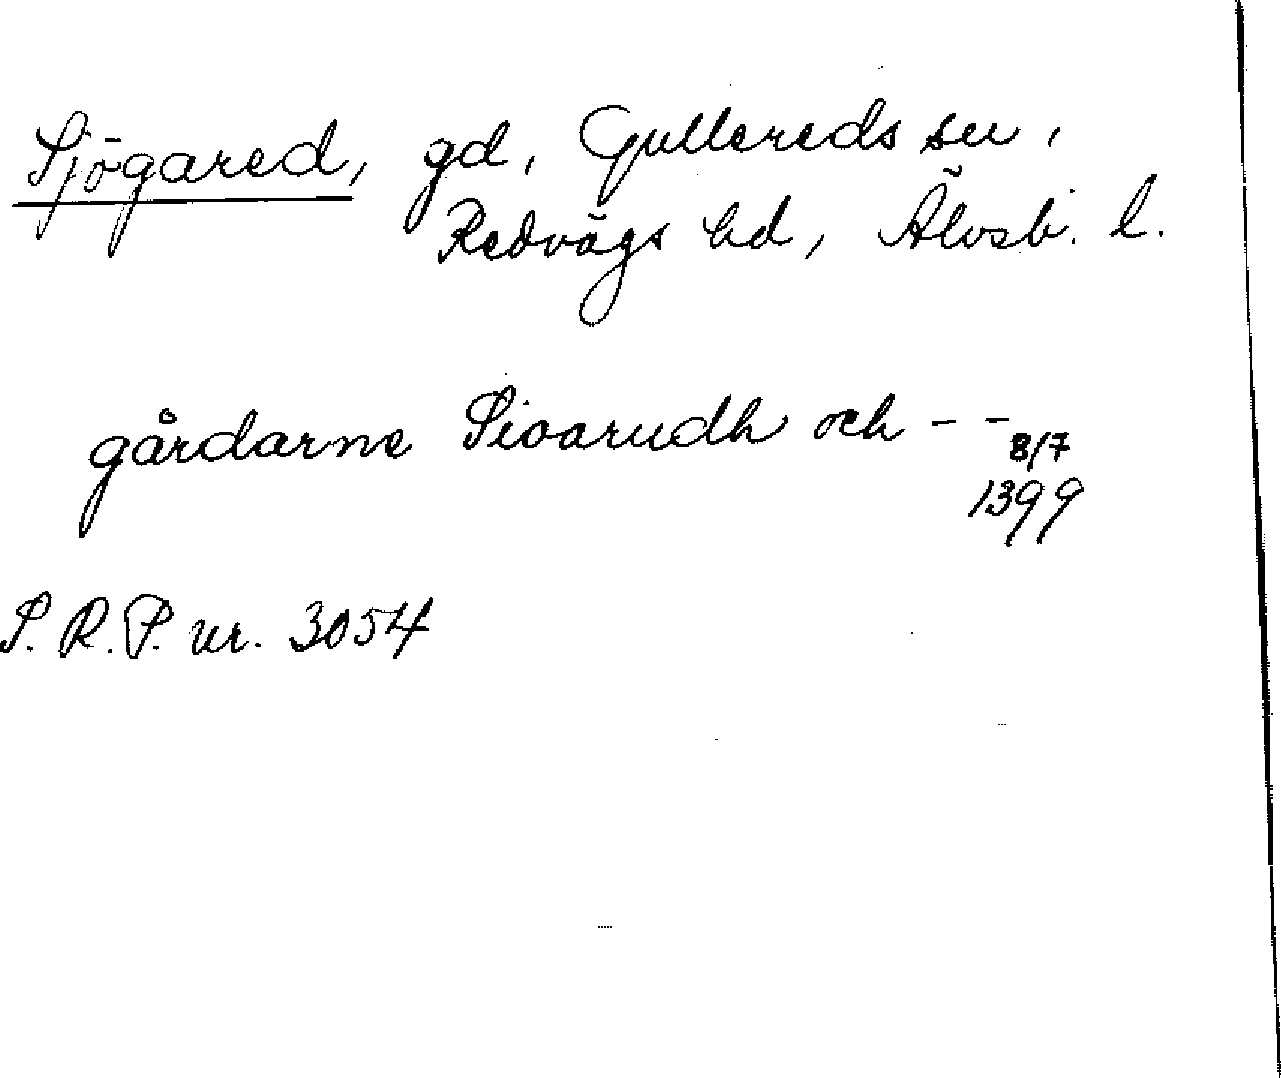 Sjögared, gd, Gullereds sn,
Redvägs hd, Älvsb. l.
gårdarne Sioarudh och - -
8/7
1399
S. R. P. nr. 3054